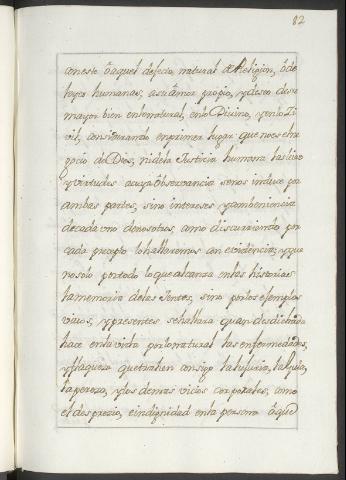 82
con este ò aquel defecto natural de Religion, ò de
leyes humanas, a su amor propio, y deseo de su
mayor bien en lo natural, en lo Divino, y en lo Zi-
vil, considerando en primer lugar que no es el ne-
gocio de Dios, ni de la Justicia humana las leies
y virtudes a cuya observancia se nos induce por
ambas partes, sino intereses y combeniencia
de cada uno de nosotros, como discurriendo por
cada precepto lo hallaremos con evidencia; y que
no solo por todo lo que alcanza en las historias
la memoria de las Jentes, sino por los exemplos
vivos, y presentes se hallara quan desdichada
hace en la vida por lo natural las enfermedades,
y flaqueza que trahen consigo la luxuria, la gula,
la pereza, y los demas vicios corporales, como
el desprecio, e indignidad en la persona ò que